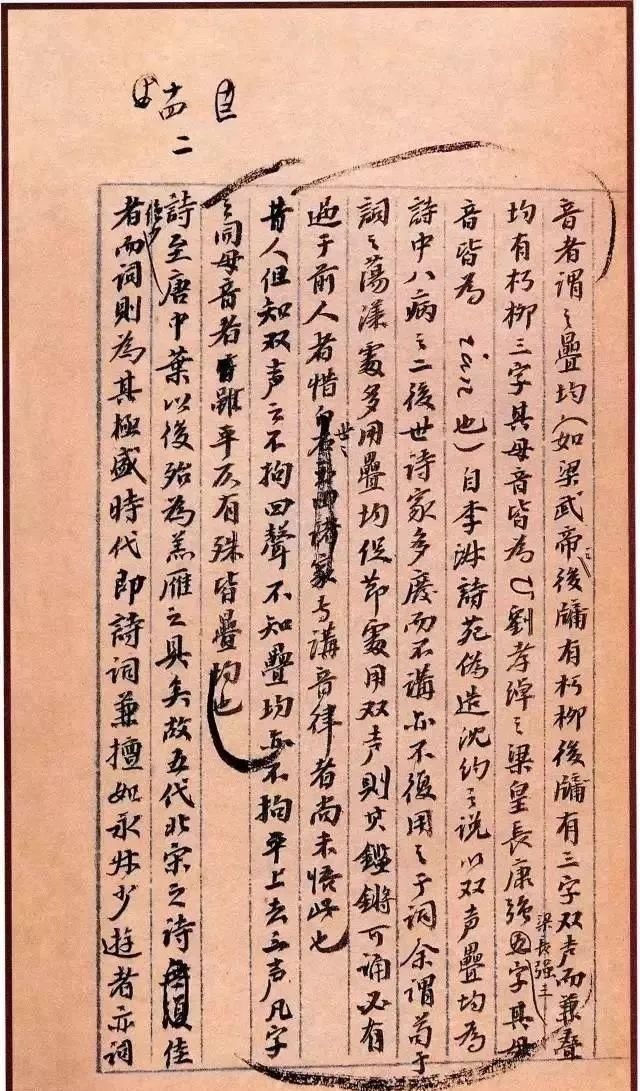 十四
二
音者謂之疊均（如梁武帝後牖有朽柳後牖有三字双声而兼疊
均有朽柳三字其母音皆為U劉孝綽之梁皇長康強
梁長强三
字其母
音皆為ian也）自李淑詩苑偽造沈約之说以双声疊均為
詩中八病之二後世詩家多廢而不講亦不復用之于词余謂苟于
詞之蕩漾處多用疊均促節處用双声則其鏗鏘可诵必有
過于前人者惜
世之
專講音律者尚未悟此也
昔人但知双声之不拘四聲不知疊均亦不拘平上去三声凡字
之同母音者雖平仄有殊皆疊均也
詩至唐中葉以後殆為羔雁之具矣故五代北宋之詩佳
者
絕少
而词則為其極盛時代即詩词兼擅如永叔少遊者亦词